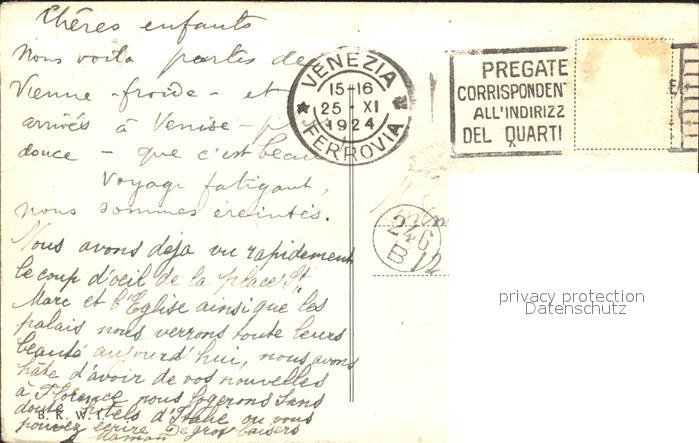 Chères enfants
Nous voila partis de
Vienne - froide - et
arrivés à Venise -
douce - que c'est beau
Voyage fatigant,
nous sommes éreintés.
Nous avons deja vu rapidement
le coup d'oeil de la place St
Marc et l'Eglise ainsi que les
palais nous verrons toute leurs
beauté aujourd'hui, nous avons
hâte d'avoir de vos nouvelles
à Florence nous logerons sans
doute hotels d'Italie ou vous
pouvez ecrire De gros baisers
Maman
B. K. W. I.
VENEZIA
15-16
25 - XI
1924
FERROVIA
PREGATE
CORRISPONDENT
ALL'INDIRIZZ
DEL QUARTI
246
B 12
privacy protection
Datenschutz